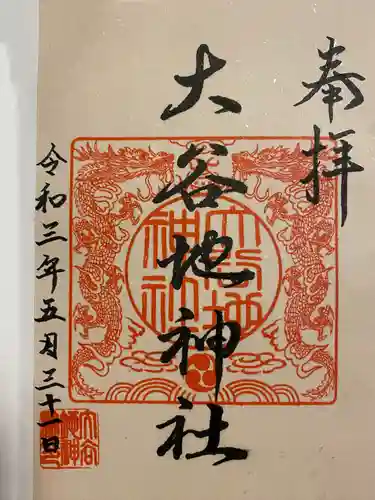 奉拝
大谷地神社
令和三年五月三十一日
大谷地神社